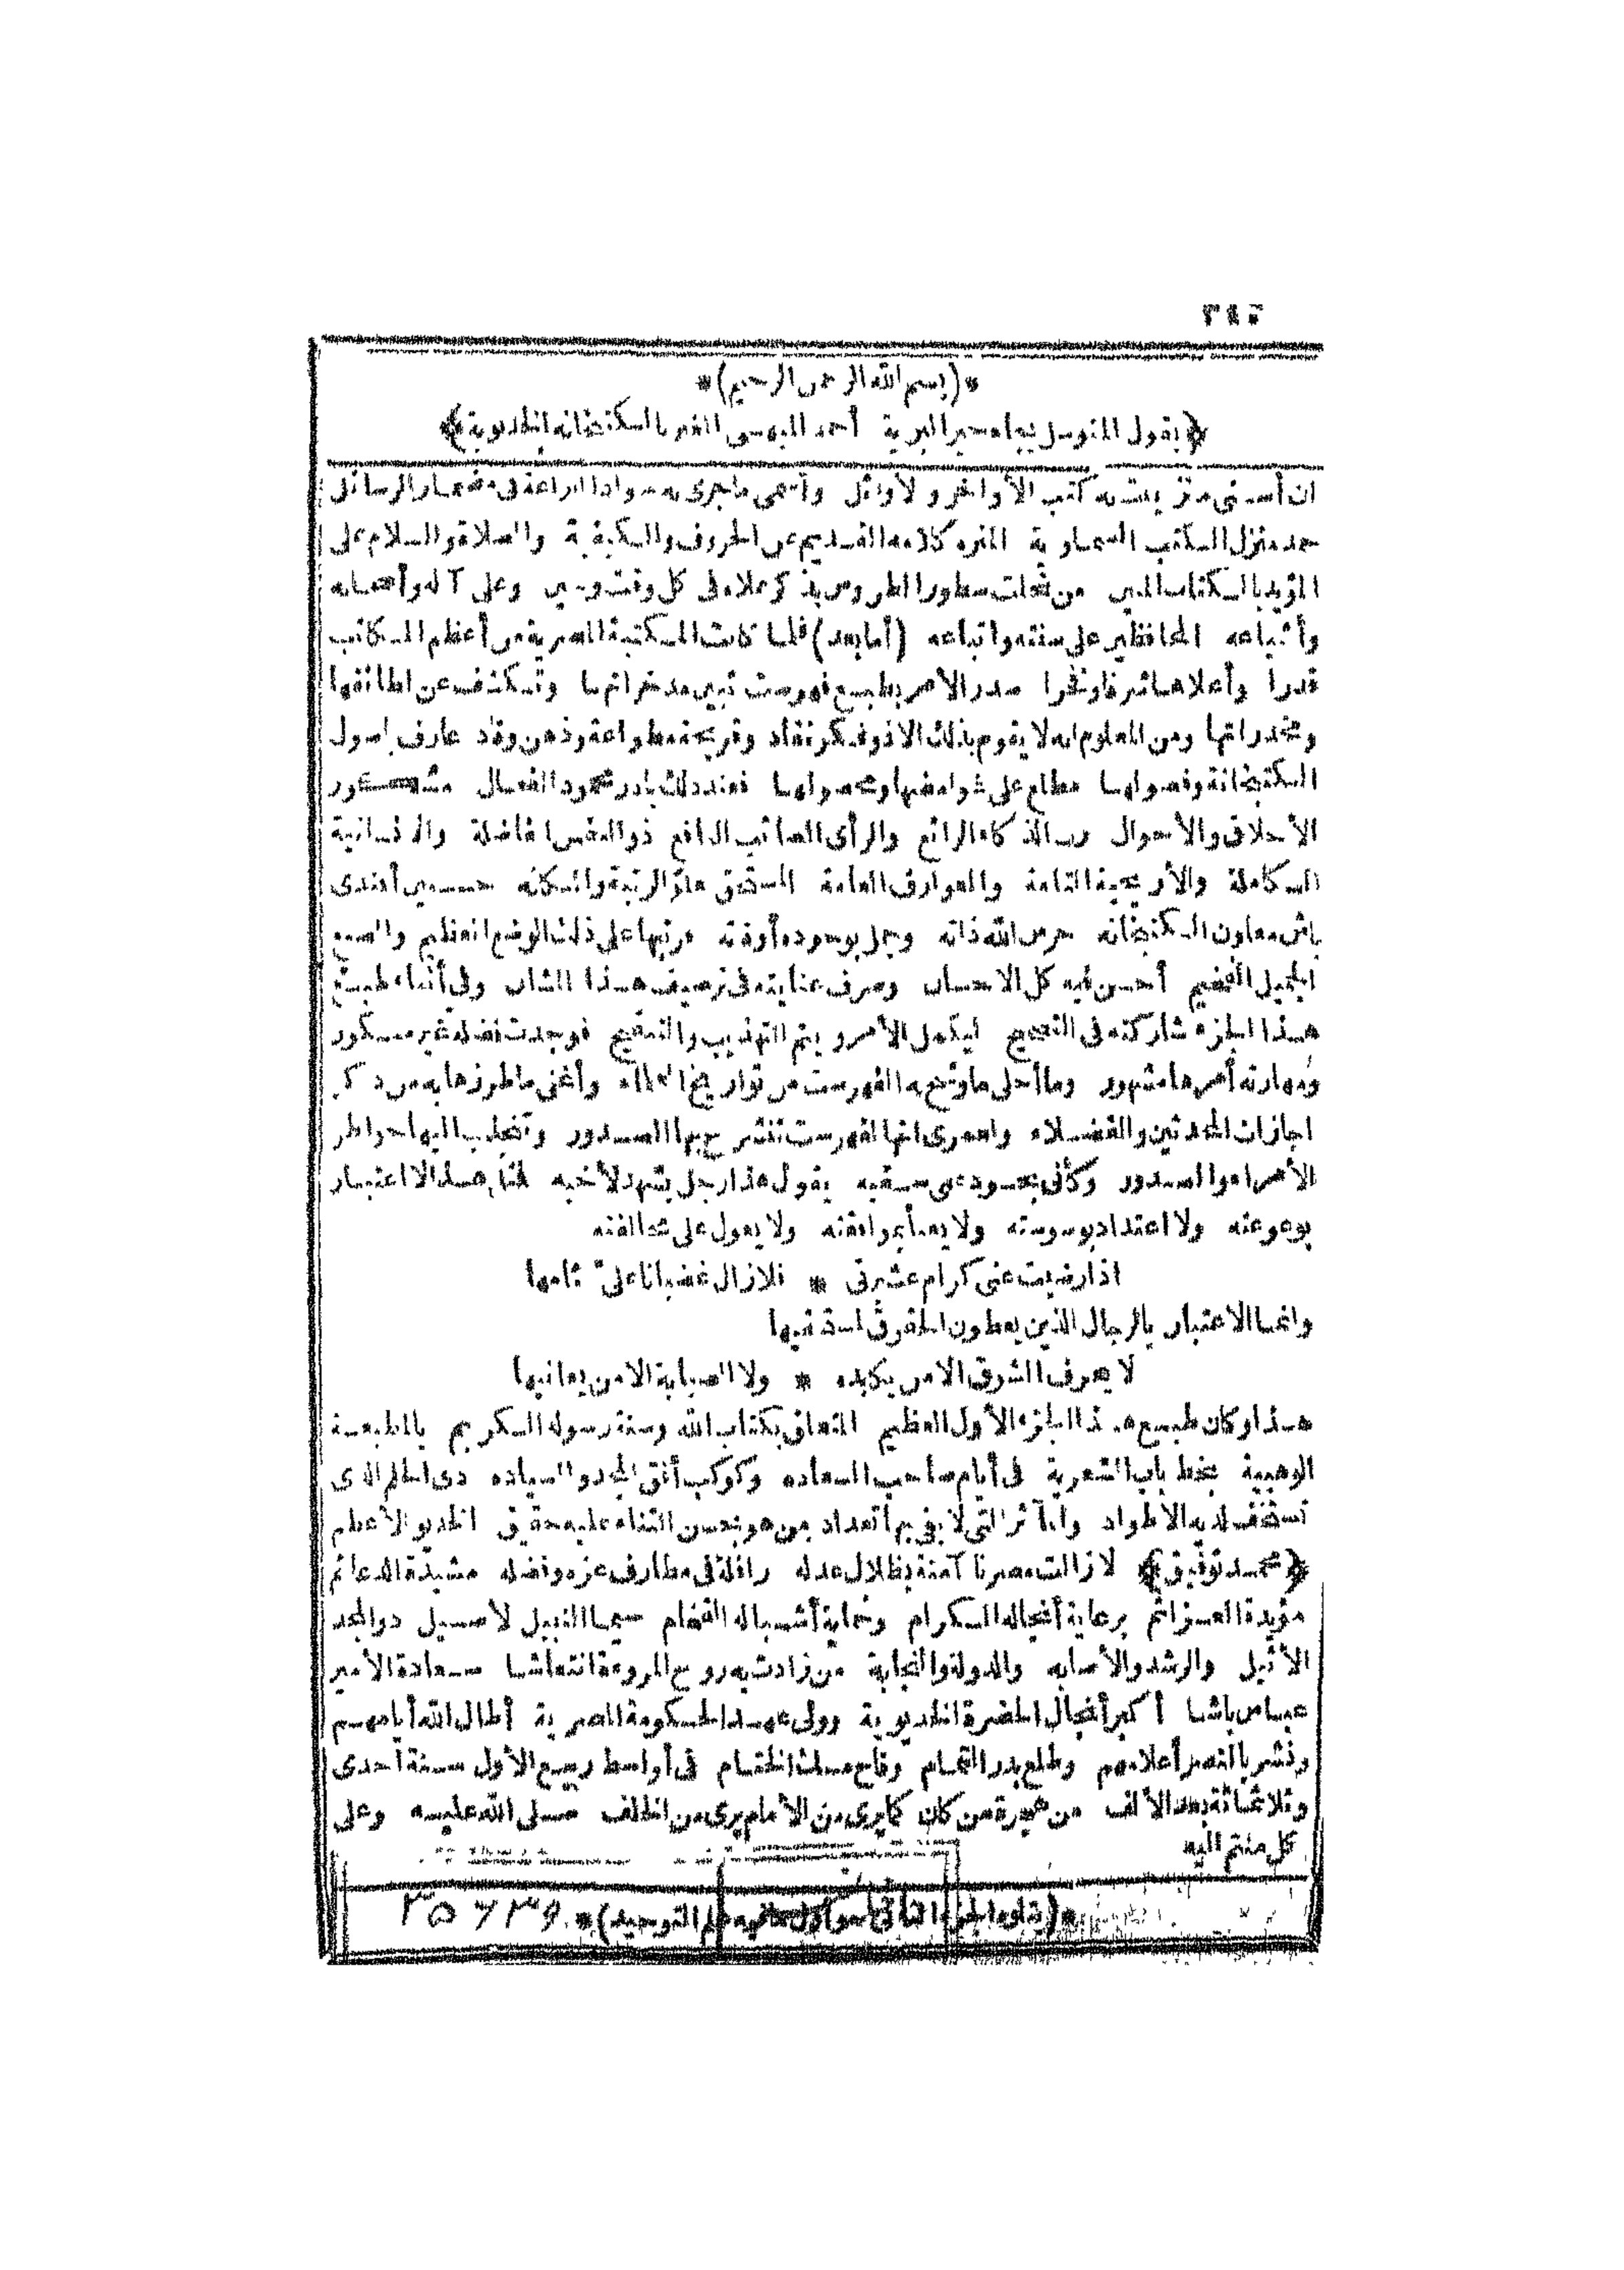 *(بسم الله الرحمن الرحيم)*
﴿يقول المتوسل بجاه خير البرية أحمد الميهى المغير بالكتبخانه الخديوية﴾
ان أسنى ما تزينت به كتب الأواخر والأوائل وأسمى ما جرى به مداد البراعة فى مضمار الرسائل
حمد منزل الكتب السماوية المنزه كلامه القديم عن الحروف والكيفية والصلاة والسلام على
المؤيد بالكتاب المبين من تحلت سطور الطروس بذكر علاه فى كل وقت وحين وعلى آله وأصحابه
وأشياعه المحافظين على سنته واتباعه (أما بعد) فلما كانت المكتبة المصرية من أعظم المكاتب
قدرا وأعلاها شرفا وفخرا صدر الأمر بطبع فهرست تبين مدخراتها وتكشف عن لطائفها
ومخدراتها ومن المعلوم انه لا يقوم بذلك الا ذو فكر نقاد وقريحة مطواعة وذهن وقاد عارف باصول
الكتبخانة وفصولها مطلع على غوامضها ومحصولها فعند ذلك بادر محمود الفعال مشكور
الأخلاق والأحوال رب الذكاء الرائع والرأى الصائب النافع ذو النفس الفاضلة والانسانية
الكاملة والأريحية التامة والعوارف العامة المستحق علو الرتبة والمكانه حسنى أفندى
باش معاون الكتبخانه حرس الله ذاته وجمل بوجوده أوقاته مرتبها على ذلك الوضع العظيم والصنيع
الجميل الفخيم أحسن فيه كل الاحسان وصرف عنايته فى ترصيف هذا الشان وفى أثناء طبع
هذا الجزء شاركته فى التصحيح ليكمل الأمر ويتم التهذيب والتنقيح فوجدت فضله غير منكور
ومهارته أمرها مشهور وما أحلى ما وشح به الفهرست من تواريخ العلماء وأغنى ما طرزها به من ذكر
اجازات المحدثين والفضلاء ولعمرى انها لفهرست تنشرح بها الصدور وتنجلب اليها خواطر
الأمراء والصدور وكأنى بحسود غبى سفيه يقول هذا رجل يشهد لأخيه فمثل هذا لا اعتبار
بوعوعته ولا اعتداد بوسوسته ولا يعبأ بموافقته ولا يعول على مخالفته
اذا رضيت عنى كرام عشيرتى * فلا زال غضبانا على لئامها
وانما الاعتبار بالرجال الذين يعطون الحقوق لمستحقيها
لا يعرف الشوق الا من يكابده * ولا الصبابة الا من يعانيها
هذا وكان طبع هذا الجزء الأول العظيم المتعلق بكتاب الله وسنة رسوله الكريم بالمطبعة
الوهبية بخط باب الشعرية فى أيام صاحب السعاده وكوكب أفق المجد والسياده ذى الحلم الذى
تستخف لديه الأطواد والمآثر التى لا يفى بها تعداد من هو بحسن الثناء عليه حقيق الخديو الأعظم
﴿محمد توفيق﴾ لا زالت مصرنا آمنة بظلال عدله رافلة فى مطارف عزه وفضله مشيدة الدعائم
مؤيدة العزائم برعاية أنجاله الكرام وحماية أشباله الفخام سيما النبيل الأصيل ذو المجد
الأثيل والرشد والأصابه والدولة والنجابة من زادت به روح المروءة انتعاشا سعادة الأمير
عباس باشا أكبر أنجال الحضرة الخديوية وولى عهد الحكومة المصرية أطال الله أيامهم
ونشر بالنصر أعلامهم وطلع بدر التمام وفاح مسك الختام فى أواسط ربيع الأول سنة احدى
وثلاثمائة بعد الألف من هجرة من كان كما يرى من الأمام يرى من الخلف صلى الله عليه وعلى
كل منتم اليه
*(يليه الجزء الثانى وأوله علم التوحيد)*